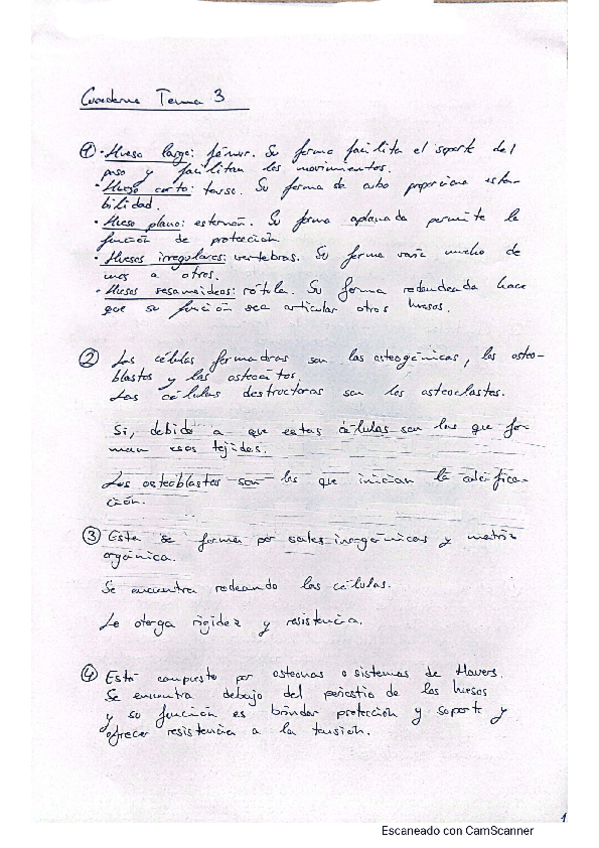 Cuaderno Tema 3
① · Hueso largo: fémur. Su forma facilita el soporte del
peso y facilitan los movimientos.
· Hueso corto: tarso. Su forma de cubo proporciona esta-
bilidad.
· Hueso plano: esternón. Su forma aplanada permite la
función de protección.
· Huesos irregulares: vertebras. Su forma varia mucho de
unos a otros.
· Huesos sesamoideos: rótula. Su forma redondeada hace
que su función sea articular otros huesos.
② Las células formadras son las osteogénicas, los osteo-
blastos y los osteocitos.
Las células destructoras son los osteoclastos.
Si, debido a que estas células son las que for-
man esos tejidos.
Los osteoblastos son los que inician la calcifica-
ción.
③ Esta se forma por sales inorgánicas y matriz
orgánica.
Se encuentra rodeando las células.
Le otorga rigidez y resistencia.
④ Está compuesto por osteonas o sistemas de Havers.
Se encuentra debajo del periostio de los huesos
y su función es brindar protección y soporte y
ofrecer resistencia a la tensión.
1
Escaneado con CamScanner